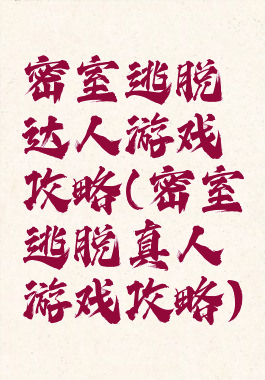 密室逃脱
达人游戏
攻略(密室
逃脱真人
游戏攻略)